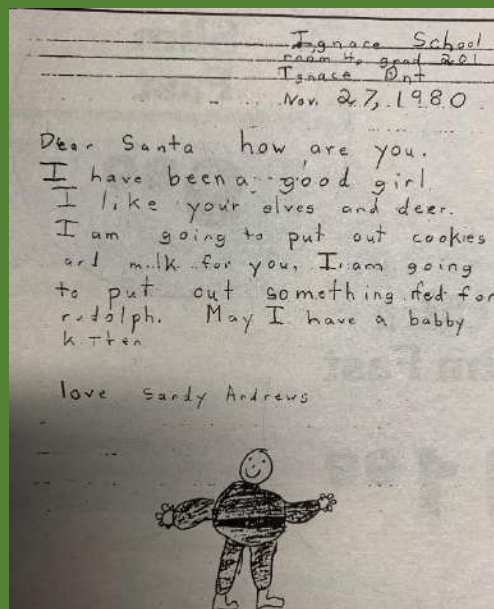 Ignace School
room 4, grad 201
Ignace Ont
Nov. 27, 1980
Dear Santa how are you.
I have been a good girl
I like your elves and deer.
I am going to put out cookies
and milk for you, I am going
to put out something red for
rudolph. May I have a babby
kitten
love Sandy Andrews